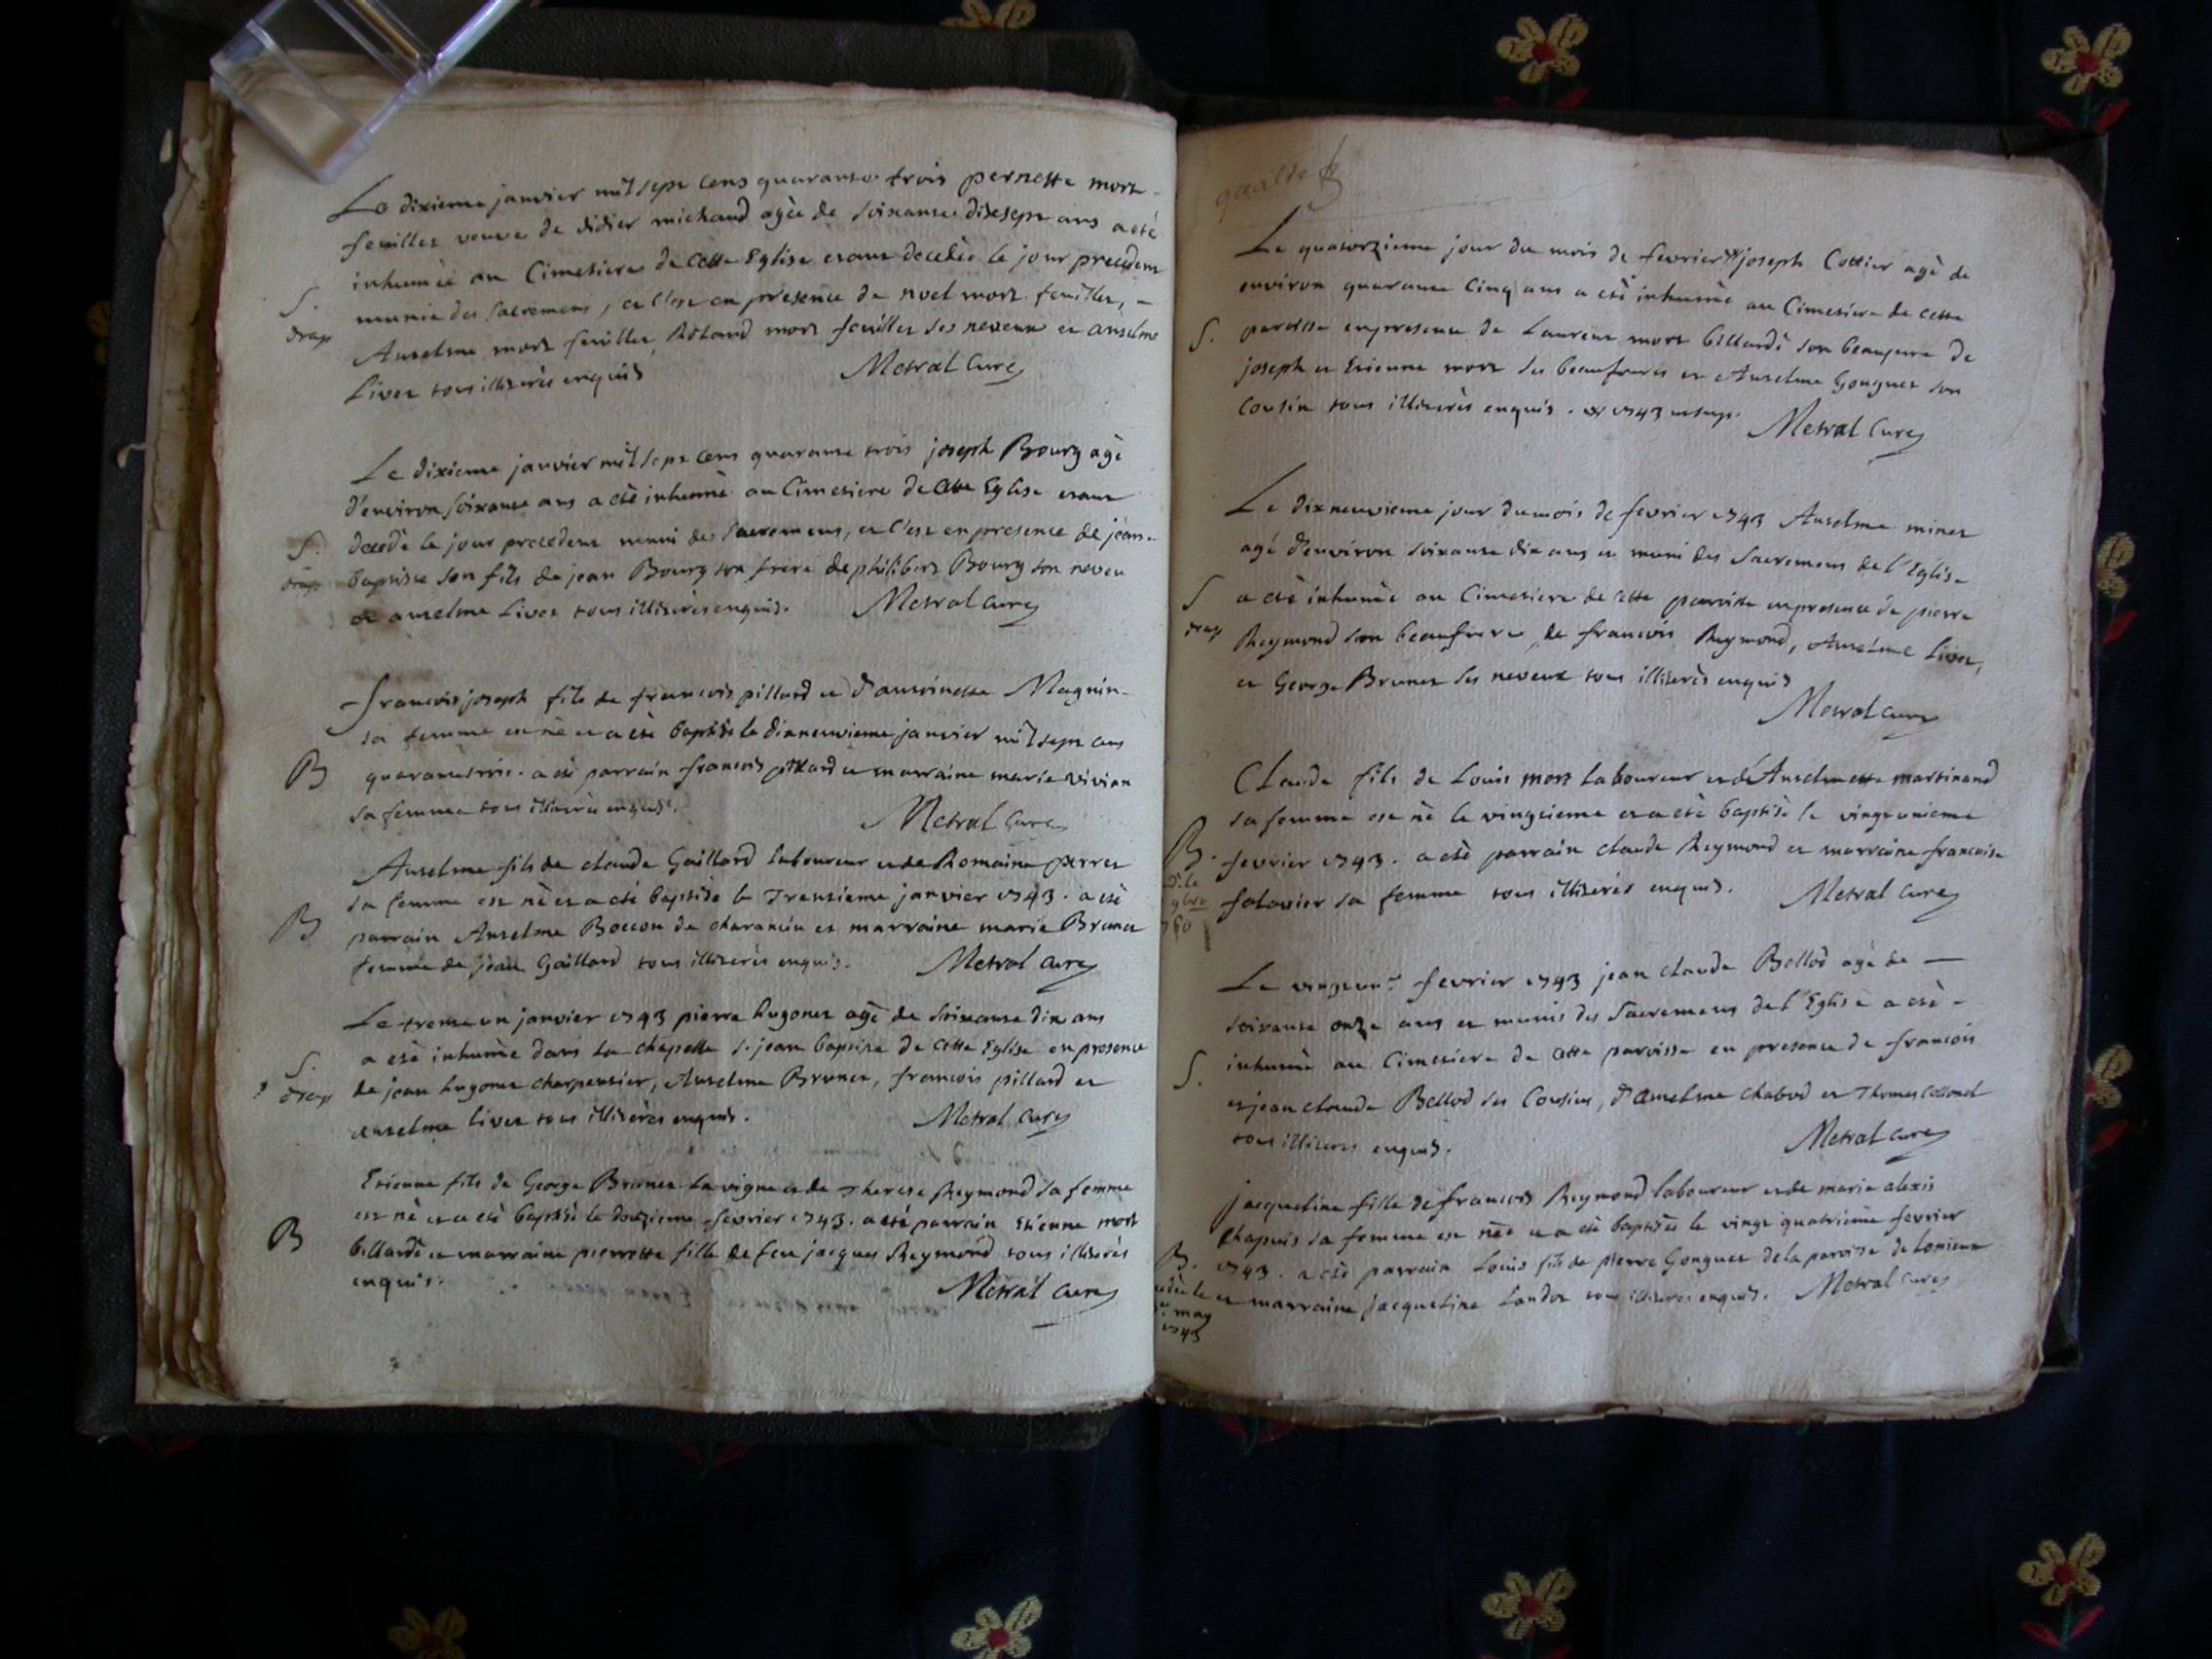 Le dixieme janvier mil sept cens quarante trois pernette mort
feuillet veuve de didier michaud agée de soixante dixsept ans a eté
inhumée au Cimetiere de cette Eglise etant decedée le jour precedent
S. munie des sacremens, et c'est en presence de noel mort feuillet,
drap Anselme mort feuillet, Roland mort feuillet ses neveux et anselme
Livet tous illiterés enquis Metral Curé
Le dixieme janvier mil sept cens quarante trois joseph Bourg agé
d'environ soixante ans a eté inhumé au Cimetiere de cette Eglise etant
S. decedé le jour precedent muni des sacremens, et c'est en presence de jean
drap baptiste son fils de jean Bourg son frere de philibert Bourg son neveu
et anselme Livet tous illiterés enquis. Metral Curé
francois joseph fils de francois pillard et d'antoinette Magnin
sa femme est né et a eté baptisé le dixneuvieme janvier mil sept cens
B quarante trois. a eté parrain francois pillard et marraine marie vivian
sa femme tous illiterés enquis. Metral Curé
Anselme fils de claude Gaillard laboureur et de Romaine perret
sa femme est né et a eté baptisé le Trentieme janvier 1743. a eté
B parrain Anselme Boccon de charancin et marraine marie Brunet
femme de jean Gaillard tous illiterés enquis. Metral Curé
Le trente un janvier 1743 pierre hugonet agé de soixante dix ans
S. a eté inhumé dans la chapelle s. jean baptiste de cette Eglise en presence
drap de jean hugonet charpentier, Anselme Brunet, francois pillard et
anselme livet tous illiterés enquis. Metral Curé
Etienne fils de George Brunet la vigne et de Therese Reymond sa femme
est né et a eté baptisé le douzieme fevrier 1743. a eté parrain Etienne mort
B billardé et marraine pierrette fille de feu jacques Reymond tous illiterés
enquis. Metral Curé
quatre
Le quatorzieme jour du mois de fevrier joseph Cottier agé de
environ quarante Cinq ans a eté inhumé au Cimetiere de cette
S. paroisse en presence de Laurent mort billardé son beaupere de
joseph et Etienne mort ses beaufreres et Anselme Gonguet son
Cousin tous illiterés enquis. 1743 ut sup. Metral Curé
Le dixneuvieme jour du mois de fevrier 1743 Anselme minet
agé d'environ soixante dix ans et muni des Sacremens de l'Eglise
S a eté inhumé au Cimetiere de cette paroisse en presence de pierre
drap Reymond son beaufrere, de francois Reymond, Anselme Livet,
et George Brunet ses neveux tous illiterés enquis
Metral Curé
Claude fils de Louis mort laboureur et de Anselmette martinand
sa femme est né le vingtieme et a eté baptisé le vingtunieme
B. fevrier 1743. a eté parrain claude Reymond et marraine francoise
falavier sa femme tous illiterés enquis. Metral Curé
Le vingtun.e fevrier 1743 jean claude Bellod agé de
soixante onze ans et munis des Sacremens de l'Eglise a eté
S. inhumé au Cimetiere de cette paroisse en presence de francois
et jean claude Bellod ses Cousins, d'anselme chabod et Thomas Collomb
tous illiterés enquis. Metral Curé
jacqueline fille de francois Reymond laboureur et de marie alexis
chapuis sa femme est née et a eté baptisée le vingt quatrieme fevrier
B. 1743. a eté parrain Louis fils de pierre Gonguet de la paroisse de Lonieux
et marraine jacqueline Tandot tous illiterés enquis. Metral Curé
may
1743